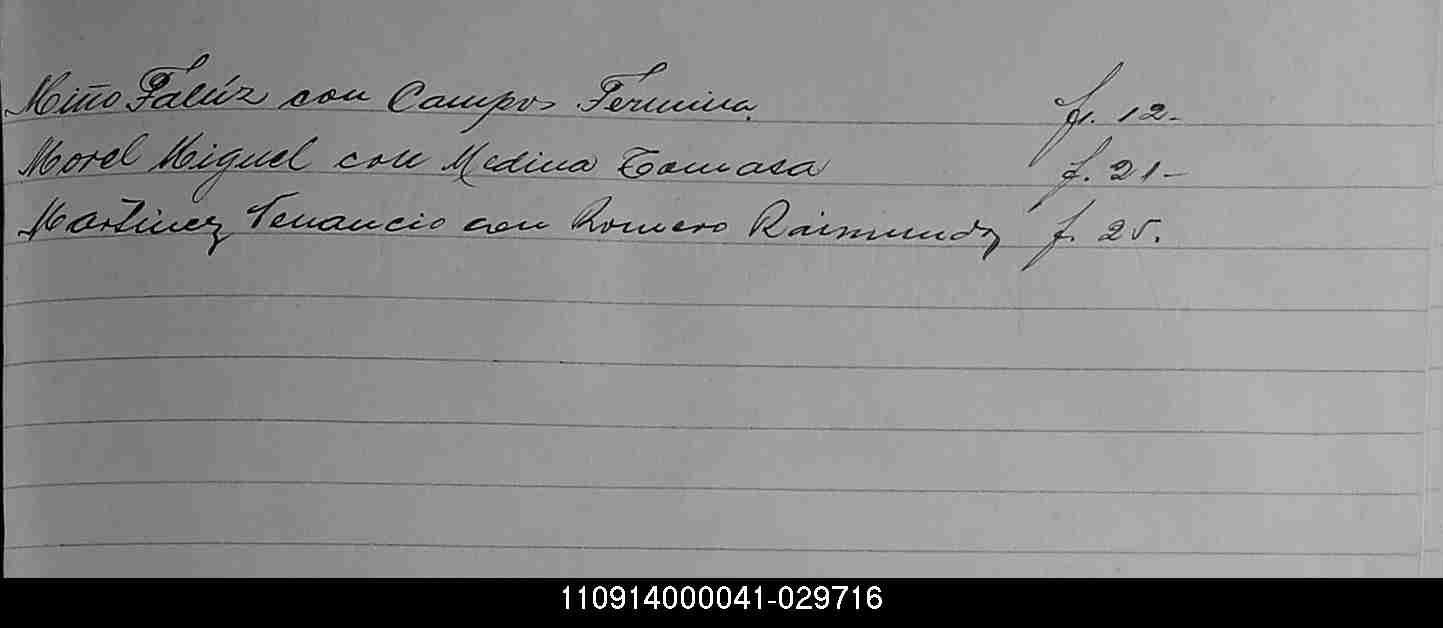 Miño Falúz con Campos Fermina. f. 12-
Morel Miguel con Medina Tomasa f. 21-
Martinez Venancio con Romero Raimunda f. 25.
110914000041-029716